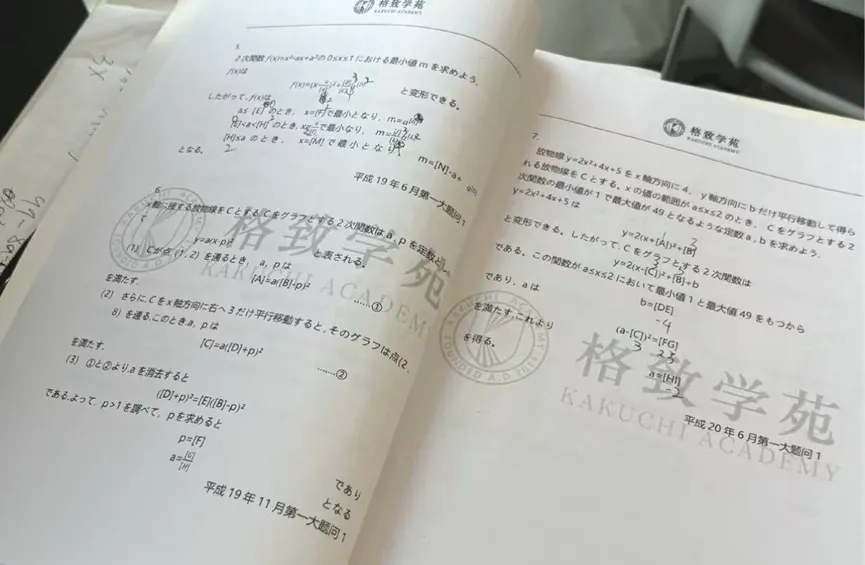 格致学苑
KAKUCHI ACADEMY
5.
2次関数 f(x)=x²-ax+a²の 0≤x≤1における最小値 m を求めよう。
f(x)は
と変形できる。
したがって、f(x)は
a≤ [E] のとき、 x=[F]で最小となり、
[E]<a<[H]のとき、
で最小なり、
[H]≤a のとき、 x=[M] で最小となり
2
m=[N]-a+
となる。
平成 19 年 6 月第一大题问 1
6.
x軸に接する放物線を C とする。C をグラフとする 2 次関数は a, p を定数とし
て
y=a(x-p)²
と表される。
(1) Cが点 (1, 2) を通るとき、a, p は
[A]=a([B]-p)²
……①
を満たす。
(2) さらに C を x 軸方向に右へ 3 だけ平行移動すると、そのグラフは点(2,
8) を通る。このとき a, p は
[C]=a([D]+p)²
……②
を満たす。
(3) ①と②より、a を消去すると
([D]+p)²=[E]([B]-p)²
である。よって、p>1 を調べて、p を求めると
p=[F]
であり
a=[G]/[H]
となる
平成 19 年 11 月第一大题问 1
格致学苑
KAKUCHI ACADEMY
7.
放物線 y=2x²+4x+5 を x 軸方向に 4、y 軸方向に b だけ平行移動して得ら
れる放物線を C とする。x の値の範囲が a≤x≤2 のとき、C をグラフとする 2
次関数の最小値が 1 で最大値が 49 となるような定数 a , b を求めよう。
y=2x²+4x+5 は
1 2
y=2(x+[A])²+[B]
と変形できる。したがって、C をグラフとする 2 次関数は
3 3
y=2(x-[C])²+[B]+b
である。この関数が a≤x≤2 において最小値 1 と最大値 49 をもつから
b=[DE]
-4
であり、a は
(a-[C])²=[FG]
3 25
を満たす。これより
a=[HI]
-2
を得る。
平成 20 年 6 月第一大题问 1
格致学苑
KAKUCHI ACADEMY
格致学苑
KAKUCHI ACADEMY
KAKUCHI ACADEMY
FOUNDED A.D.